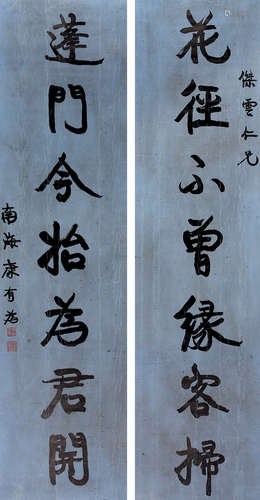 花徑不曾緣客掃
傑雲仁兄
蓬門今始為君開
南海康有為